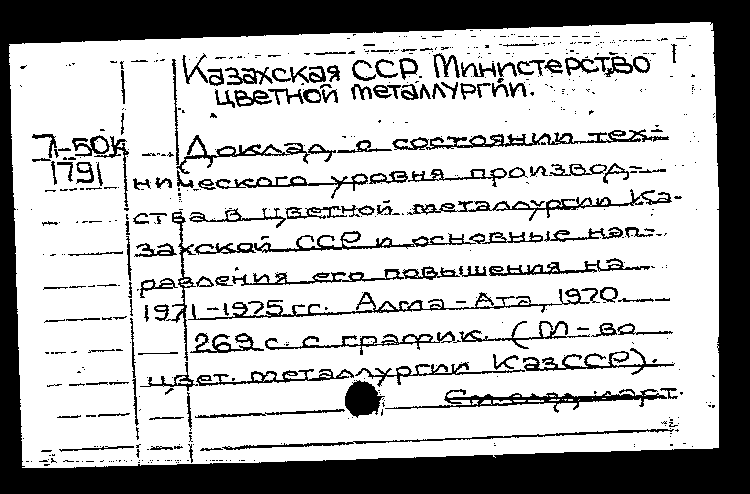 Казахская ССР. Министерство
цветной металлургии.
7-50к
1791
Доклад о состоянии тех-
нического уровня производ-
ства в цветной металлургии Ка-
захской ССР и основные нап-
равления его повышения на
1971-1975 гг. Алма-Ата, 1970.
269 с. с график. (М-во
цвет. металлургии КазССР).
См. след. карт.